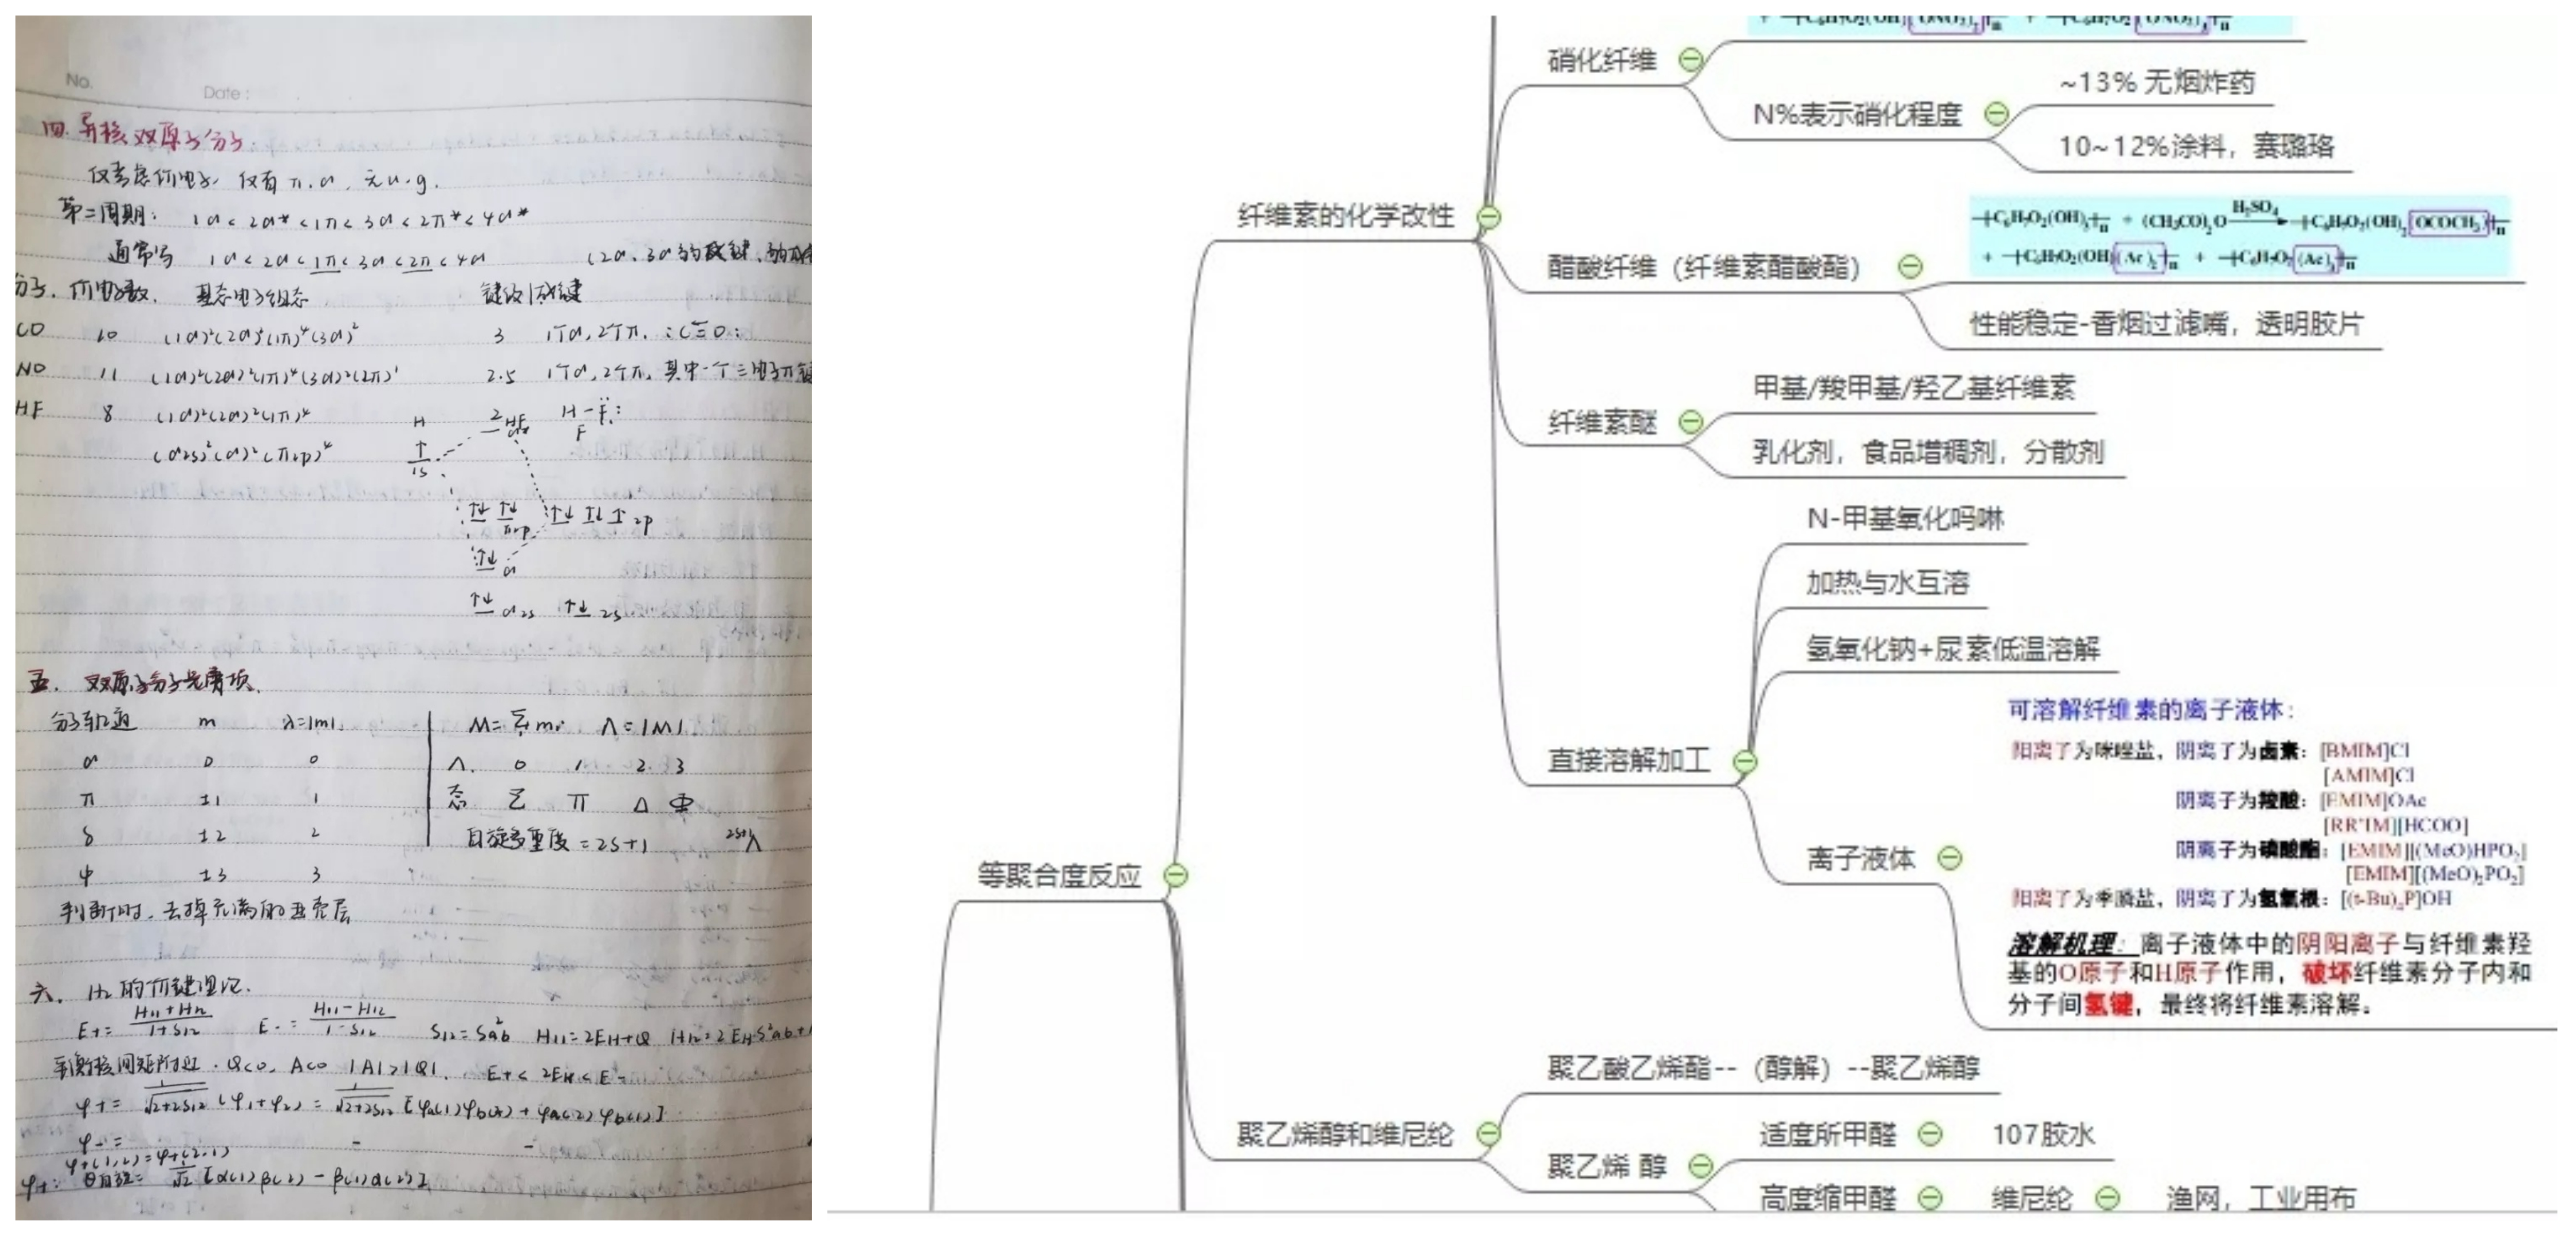 No.
Date:
四. 异核双原子分子
仅考虑价电子, 仅有π.σ, 无u.g.
第二周期: 1σ<2σ*<1π<3σ<2π*<4σ*
通常写 1σ<2σ<1π<3σ<2π<4σ
分子. 价电子数. 基态电子组态 键级 成键
CO 10 (1σ)²(2σ)²(1π)⁴(3σ)² 3 1个σ,2个π. :C≡O:
NO 11 (1σ)²(2σ)²(1π)⁴(3σ)²(2π)¹ 2.5 1个σ,2个π, 其中一个三电子π键
HF 8 (1σ)²(2σ)²(1π)⁴
(σ2s)²(σ)²(π2p)⁴
H HF F
1s
π2p 2p
σ
σ2s 2s
五. 双原子分子光谱项.
分子轨道 m λ=|m|.
σ 0 0
π ±1 1
δ ±2 2
φ ±3 3
M=Σmi Λ=|M|
Λ. 0 1 2. 3
态 Σ Π Δ Φ
自旋多重度=2S+1 ²ˢ⁺¹Λ
判断时, 去掉充满的亚壳层
六. H₂的价键理论.
E+= H11+H12 / 1+S12 E-= H11-H12 / 1-S12 S12=Sab² H11=2EH+Q H12=2EHS²ab+
平衡核间距附近. Q<0, A<0 |A|>|Q|. E+<2EH<E-
ψ+= 1/√2+2S12 (ψ1+ψ2) = 1/√2+2S12 [φa(1)φb(2)+φa(2)φb(1)]
ψ-= - -
ψ+(1,2)=ψ+(2,1)
ψ+: 自旋= 1/√2 [α(1)β(2)-β(1)α(2)]
硝化纤维
N%表示硝化程度
~13% 无烟炸药
10~12%涂料，赛璐珞
纤维素的化学改性
醋酸纤维（纤维素醋酸酯）
-[C₆H₇O₂(OH)₃]-n + (CH₃CO)₂O H₂SO₄ -[C₆H₇O₂(OH)₂[OCOCH₃]]-n
+ -[C₆H₇O₂(OH)(Ac)₂]-n + -[C₆H₇O₂(Ac)₃]-n
性能稳定-香烟过滤嘴，透明胶片
纤维素醚
甲基/羧甲基/羟乙基纤维素
乳化剂，食品增稠剂，分散剂
直接溶解加工
N-甲基氧化吗啉
加热与水互溶
氢氧化钠+尿素低温溶解
离子液体
可溶解纤维素的离子液体：
阳离子为咪唑盐，阴离子为卤素：[BMIM]Cl
[AMIM]Cl
阴离子为羧酸：[EMIM]OAc
[RR'IM][HCOO]
阴离子为磷酸酯：[EMIM][(MeO)HPO₂]
[EMIM][(MeO)₂PO₂]
阳离子为季膦盐，阴离子为氢氧根：[(t-Bu)₄P]OH
溶解机理：离子液体中的阴阳离子与纤维素羟
基的O原子和H原子作用，破坏纤维素分子内和
分子间氢键，最终将纤维素溶解。
等聚合度反应
聚乙烯醇和维尼纶
聚乙酸乙烯酯--（醇解）--聚乙烯醇
聚乙烯 醇
适度所甲醛
107胶水
高度缩甲醛
维尼纶
渔网，工业用布